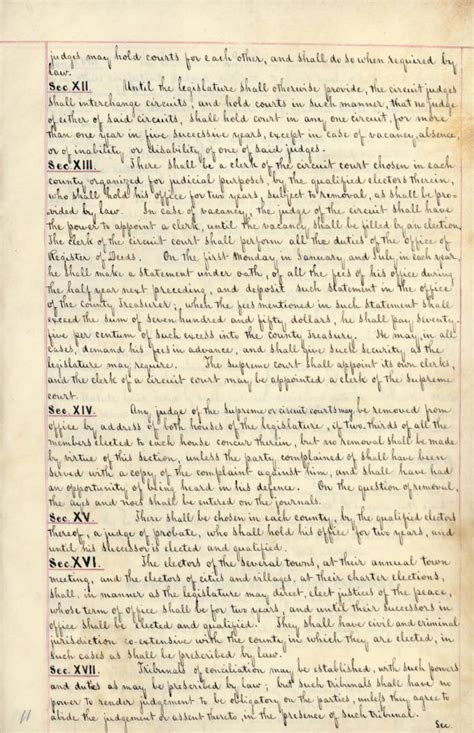 judges may hold courts for each other, and shall do so when required by
law.
Sec. XII. Until the legislature shall otherwise provide, the circuit judges
shall interchange circuits, and hold courts in such manner, that no judge
of either of said circuits, shall hold court in any one circuit, for more
than one year in five successive years, except in case of vacancy, absence,
or of inability or disability of one of said judges.
Sec. XIII. There shall be a clerk of the circuit court chosen in each
county organized for judicial purposes, by the qualified electors therein,
who shall hold his office for two years, subject to removal, as shall be pro-
vided by law. In case of vacancy, the judge of the circuit shall have
the power to appoint a clerk, until the vacancy shall be filled by an election.
The clerk of the circuit court shall perform all the duties of the office of
Register of Deeds. On the first Monday in January and July, in each year,
he shall make a statement under oath, of all the fees of his office during
the half year next preceding, and deposit such statement in the office
of the county Treasurer; when the fees mentioned in such statement shall
exceed the sum of seven hundred and fifty dollars, he shall pay seventy-
five per centum of such excess into the county Treasury. He may, in all
cases, demand his fees in advance, and shall give such security as the
legislature may require. The supreme court shall appoint its own clerks,
and the clerk of a circuit court may be appointed a clerk of the supreme
court.
Sec. XIV. Any judge of the supreme or circuit courts may be removed from
office by address of both houses of the legislature, if two-thirds of all the
members elected to each house concur therein, but no removal shall be made
by virtue of this section, unless the party complained of shall have been
served with a copy of the complaint against him, and shall have had
an opportunity of being heard in his defence. On the question of removal,
the ayes and noes shall be entered on the journals.
Sec. XV. There shall be chosen in each county, by the qualified electors
thereof, a judge of probate, who shall hold his office for two years, and
until his successor is elected and qualified.
Sec. XVI. The electors of the several towns, at their annual town
meeting, and the electors of cities and villages, at their charter elections,
shall, in manner as the legislature may direct, elect justices of the peace,
whose term of office shall be for two years, and until their successors in
office shall be elected and qualified. They shall have civil and criminal
jurisdiction co-extensive with the county in which they are elected, in
such cases as shall be prescribed by law.
Sec. XVII. Tribunals of conciliation may be established, with such powers
and duties as may be prescribed by law; but such tribunals shall have no
power to render judgement to be obligatory on the parties, unless they agree to
abide the judgement or assent thereto, in the presence of such tribunal.
11
Sec.